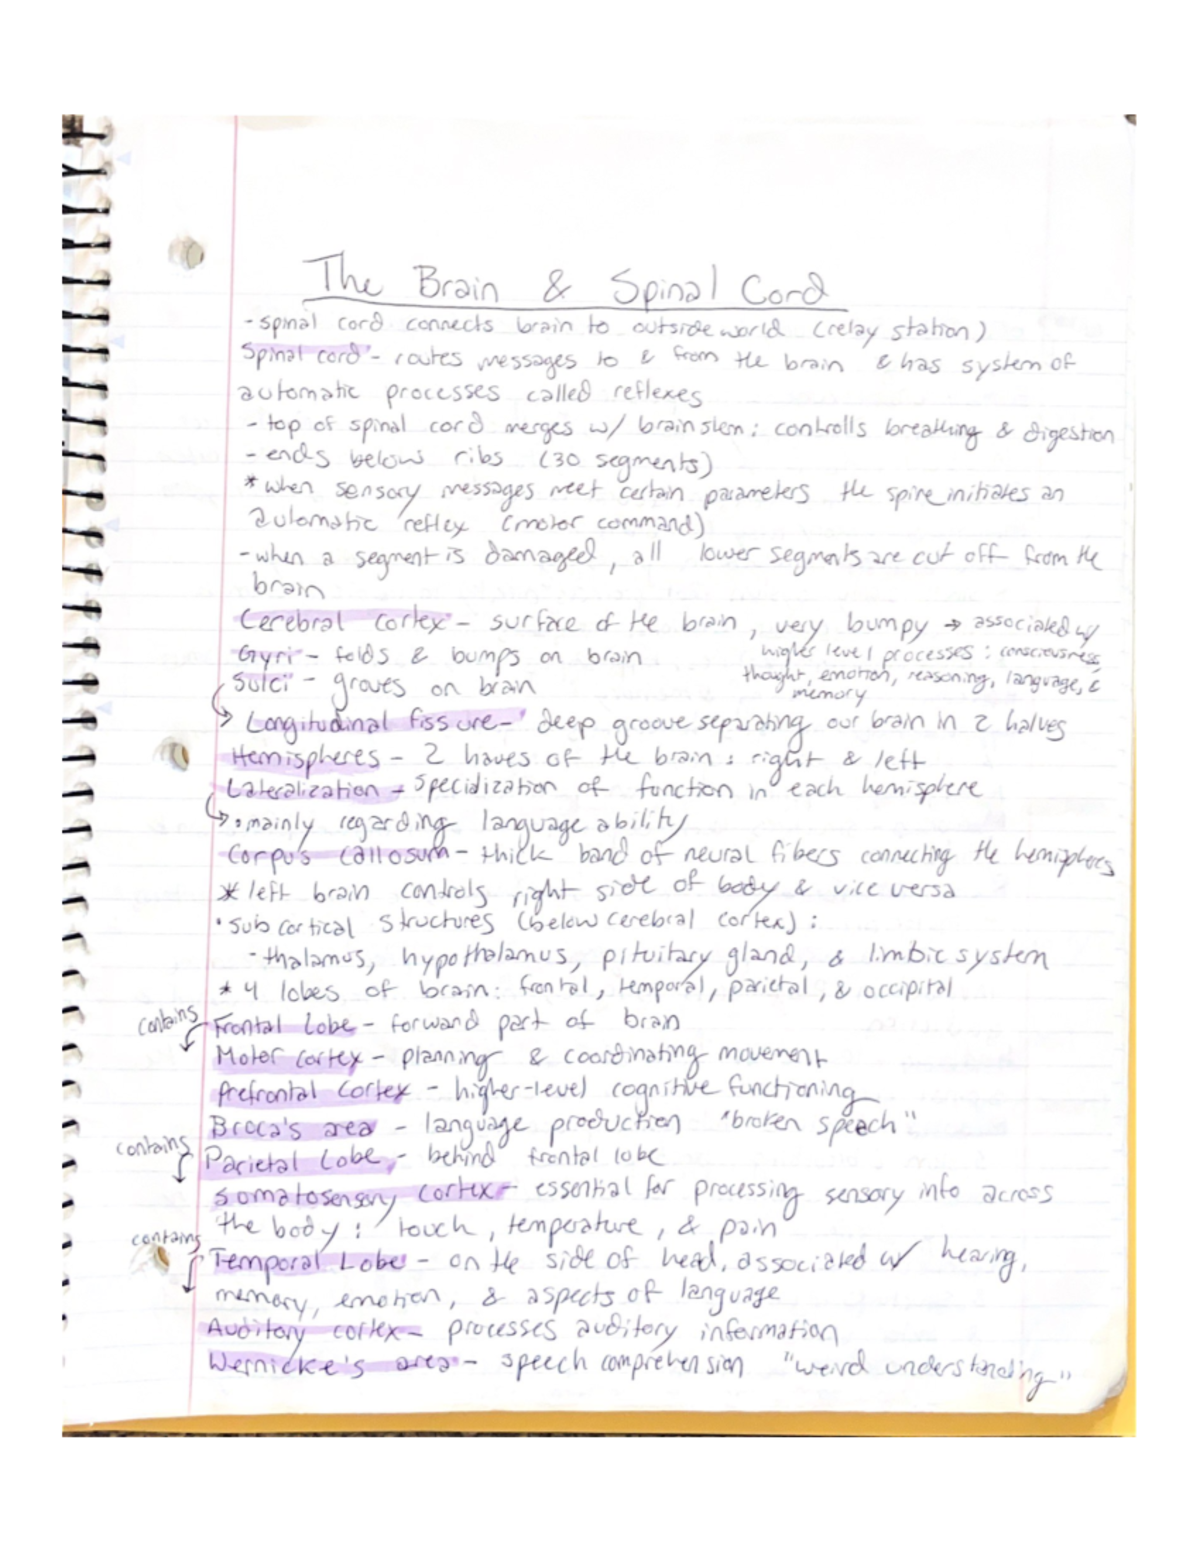 The Brain & Spinal Cord
- spinal cord connects brain to outside world (relay station)
Spinal cord - routes messages to & from the brain & has system of
automatic processes called reflexes
- top of spinal cord merges w/ brain stem: controlls breathing & digestion
- ends belows ribs (30 segments)
* when sensory messages meet certain parameters the spine initiates an
automatic reflex (motor command)
- when a segment is damaged, all lower segments are cut off from the
brain
Cerebral cortex - surface of the brain, very bumpy → associated w/
higher level processes: consciousness,
Gyri - folds & bumps on brain
thought, emotion, reasoning, language, &
memory
Sulci - groves on brain
↳ Longitudinal fissure - deep groove separating our brain in 2 halves
Hemispheres - 2 haves of the brain: right & left
Lateralization - specialization of function in each hemisphere
↳ • mainly regarding language ability
Corpus callosum - thick band of neural fibers connecting the hemispheres
* left brain controls right side of body & vice versa
• subcortical structures (below cerebral cortex):
- thalamus, hypothalamus, pituitary gland, & limbic system
* 4 lobes of brain: frontal, temporal, parietal, & occipital
contains
Frontal Lobe - forward part of brain
Motor cortex - planning & coordinating movement
Prefrontal Cortex - higher-level cognitive functioning
Broca's area - language production "broken speech"
contains
Parietal Lobe - behind frontal lobe
somatosensory cortex - essential for processing sensory info across
the body: touch, temperature, & pain
contains
Temporal Lobe - on the side of head, associated w/ hearing,
memory, emotion, & aspects of language
Auditory cortex - processes auditory information
Wernicke's area - speech comprehension "weird understanding"